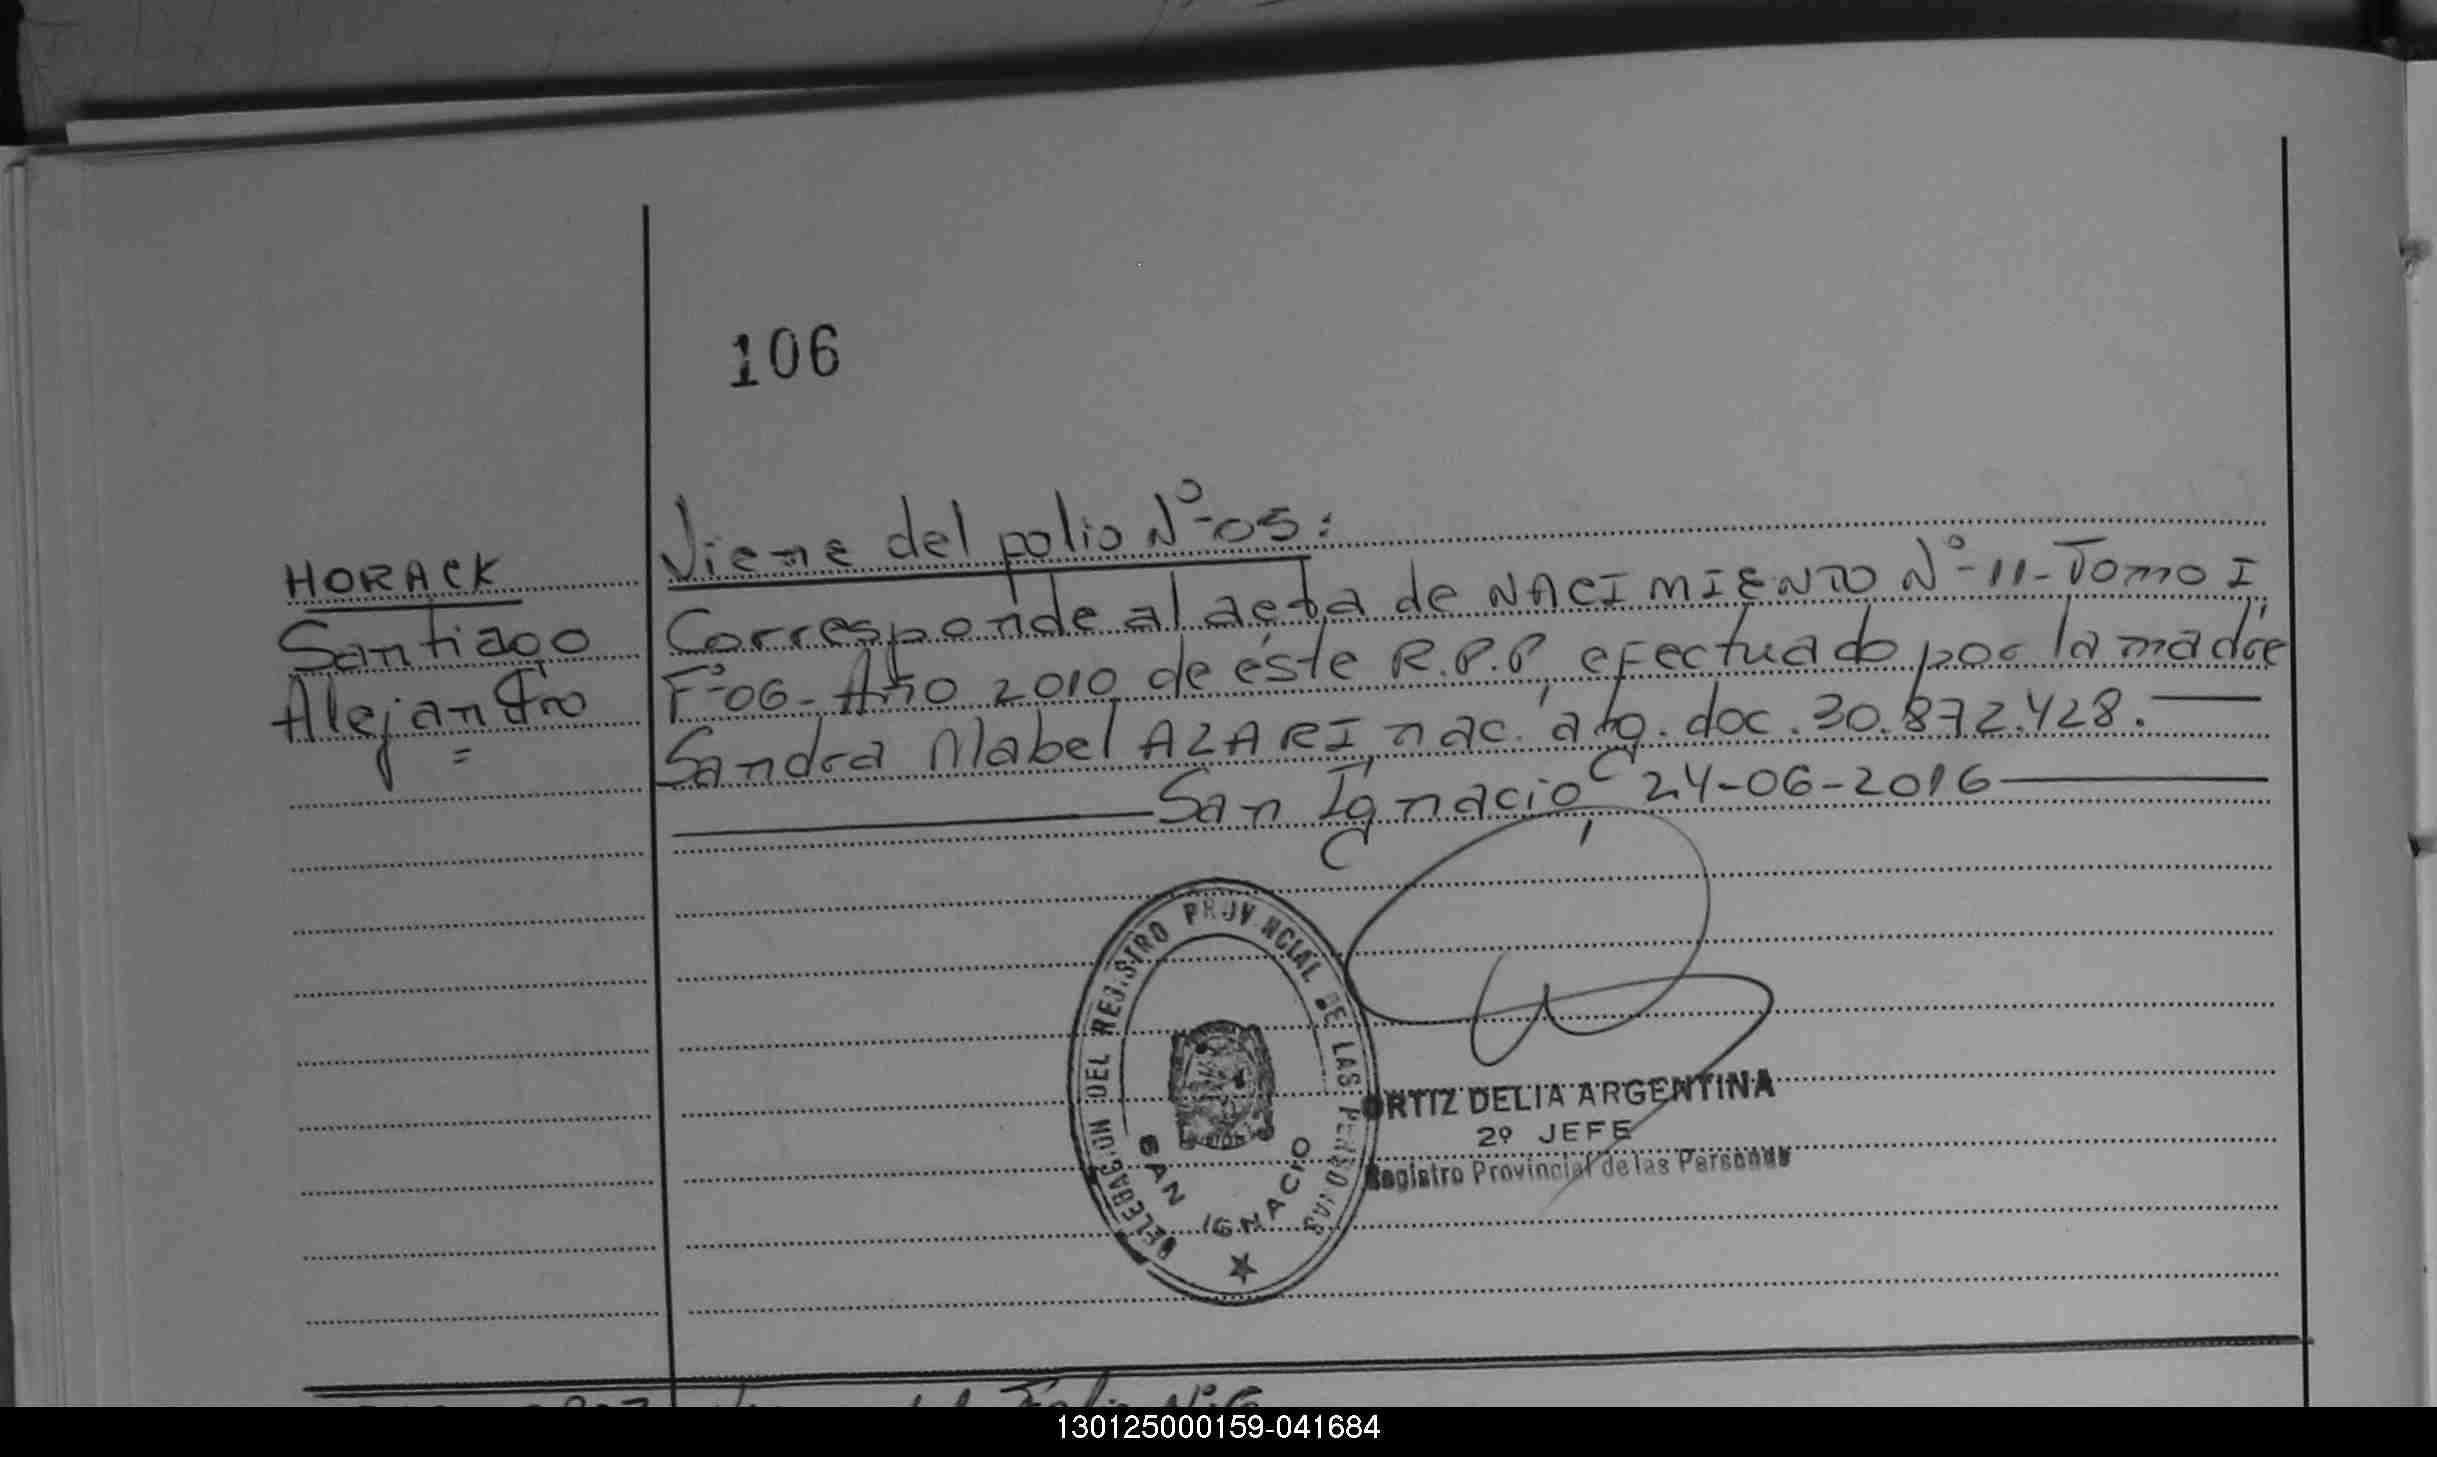 106
Viene del polio Nº-05:
HORACK
Santiago
Alejandro
=
Corresponde al acta de NACIMIENTO Nº-11-Tomo I
Fº06-Año 2010 de éste R.P.P, efectuado por la madre
Sandra Mabel AZARI, nac. arg. doc. 30.872.428.
San Ignacio, 24-06-2016
DELEGACION DEL REGISTRO PROVINCIAL DE LAS PERSONAS
SAN IGNACIO
ORTIZ DELIA ARGENTINA
2º JEFE
Registro Provincial de las Personas
130125000159-041684